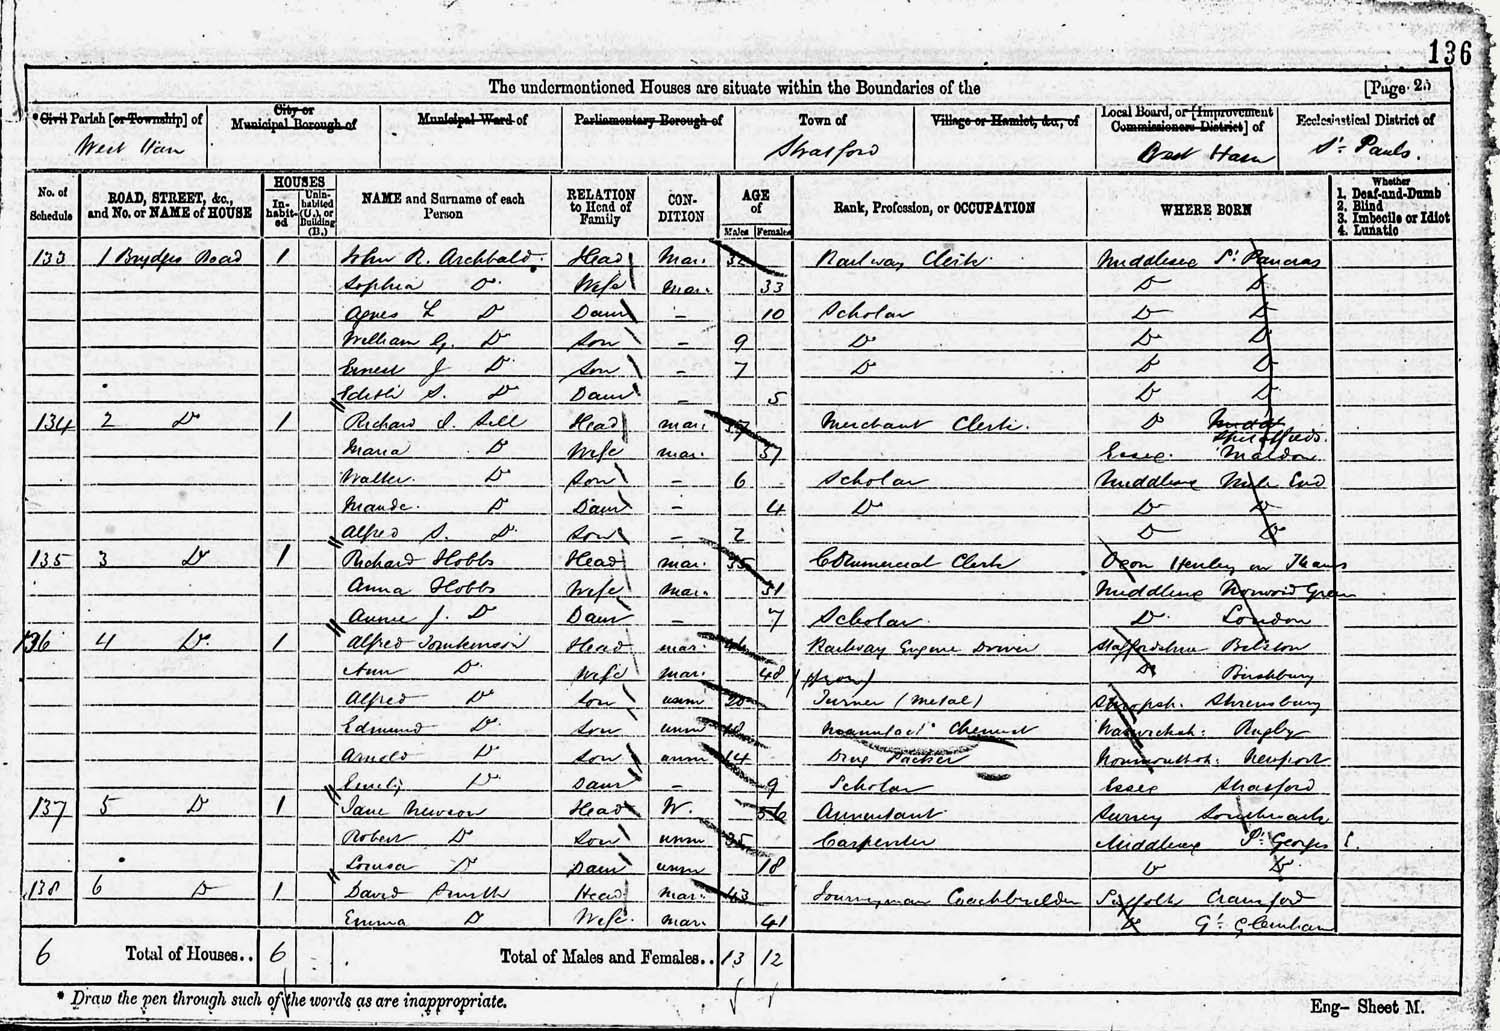 136
The undermentioned Houses are situate within the Boundaries of the [Page 25
*Civil Parish [or Township] of City or Municipal Borough of Municipal Ward of Parliamentary Borough of Town of Village or Hamlet, &c., of Local Board, or [Improvement Commissioners District] of Ecclesiastical District of
West Ham Stratford West Ham St. Pauls.
No. of Schedule ROAD, STREET, &c., and No. or NAME of HOUSE HOUSES In-habit-ed Unin-habited (U.), or Building (B.) NAME and Surname of each Person RELATION to Head of Family CON-DITION AGE of Males Females Rank, Profession, or OCCUPATION WHERE BORN Whether 1. Deaf-and-Dumb 2. Blind 3. Imbecile or Idiot 4. Lunatic
133 1 Brydges Road 1 John R. Archbald Head Mar. 32 Railway Clerk Middlesex St. Pancras
Sophia Do Wife Mar. 33 Do Do
Agnes L Do Daur - 10 Scholar Do Do
William G. Do Son - 9 Do Do Do
Ernest J Do Son - 7 Do Do Do
Edith S. Do Daur - 5 Do Do
134 2 Do 1 Richard Sell Head mar. 37 Merchant Clerk. Do Spitalfields.
Maria Do Wife mar. 37 Essex. Maldon.
Walter. Do Son - 6 Scholar Middlesex Mile End
Maude. Do Daur - 4 Do Do Do
Alfred S. Do Son - 2 Do Do
135 3 Do 1 Richard Hobbs Head mar. 35 Commercial Clerk Oxon Henley on Thames
Anna Hobbs Wife Mar. 31 Middlesex Norwood Green
Annie J. Do Daur - 7 Scholar. Do. London
136 4 Do. 1 Alfred Tomkinson Head mar. Railway Engine Driver Staffordshire Bilston
Ann Do Wife mar. 48 Do Bushbury
Alfred Do Son unm 20 Turner (Metal) Shropsh. Shrewsbury
Edmund Do. Son unm 18 Manufact. Chemist Warwicksh: Rugby
Arnold Do Son unm 14 Drug Packer Monmouthsh: Newport
Emily Do Daur - 9 Scholar Essex Stratford
137 5 Do 1 Jane Newson Head W. 56 Annuitant Surrey Southwark
Robert Do Son unm 35 Carpenter Middlesex St. Georges E.
Louisa Do Daur unm 18 Do Do
138 6 Do 1 David Smith Head mar. 43 Journeyman Coachbuilder Suffolk Cransford
Emma Do Wife. mar. 41 Do Gt. Glemham
6 Total of Houses.. 6 Total of Males and Females.. 13 12
* Draw the pen through such of the words as are inappropriate. Eng— Sheet M.